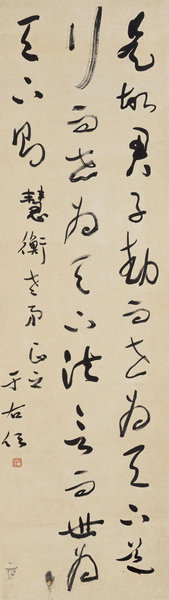 是故君子動而世為天下道
行而世為天下法言而世為
天下則 慧衡老弟正之
于右任